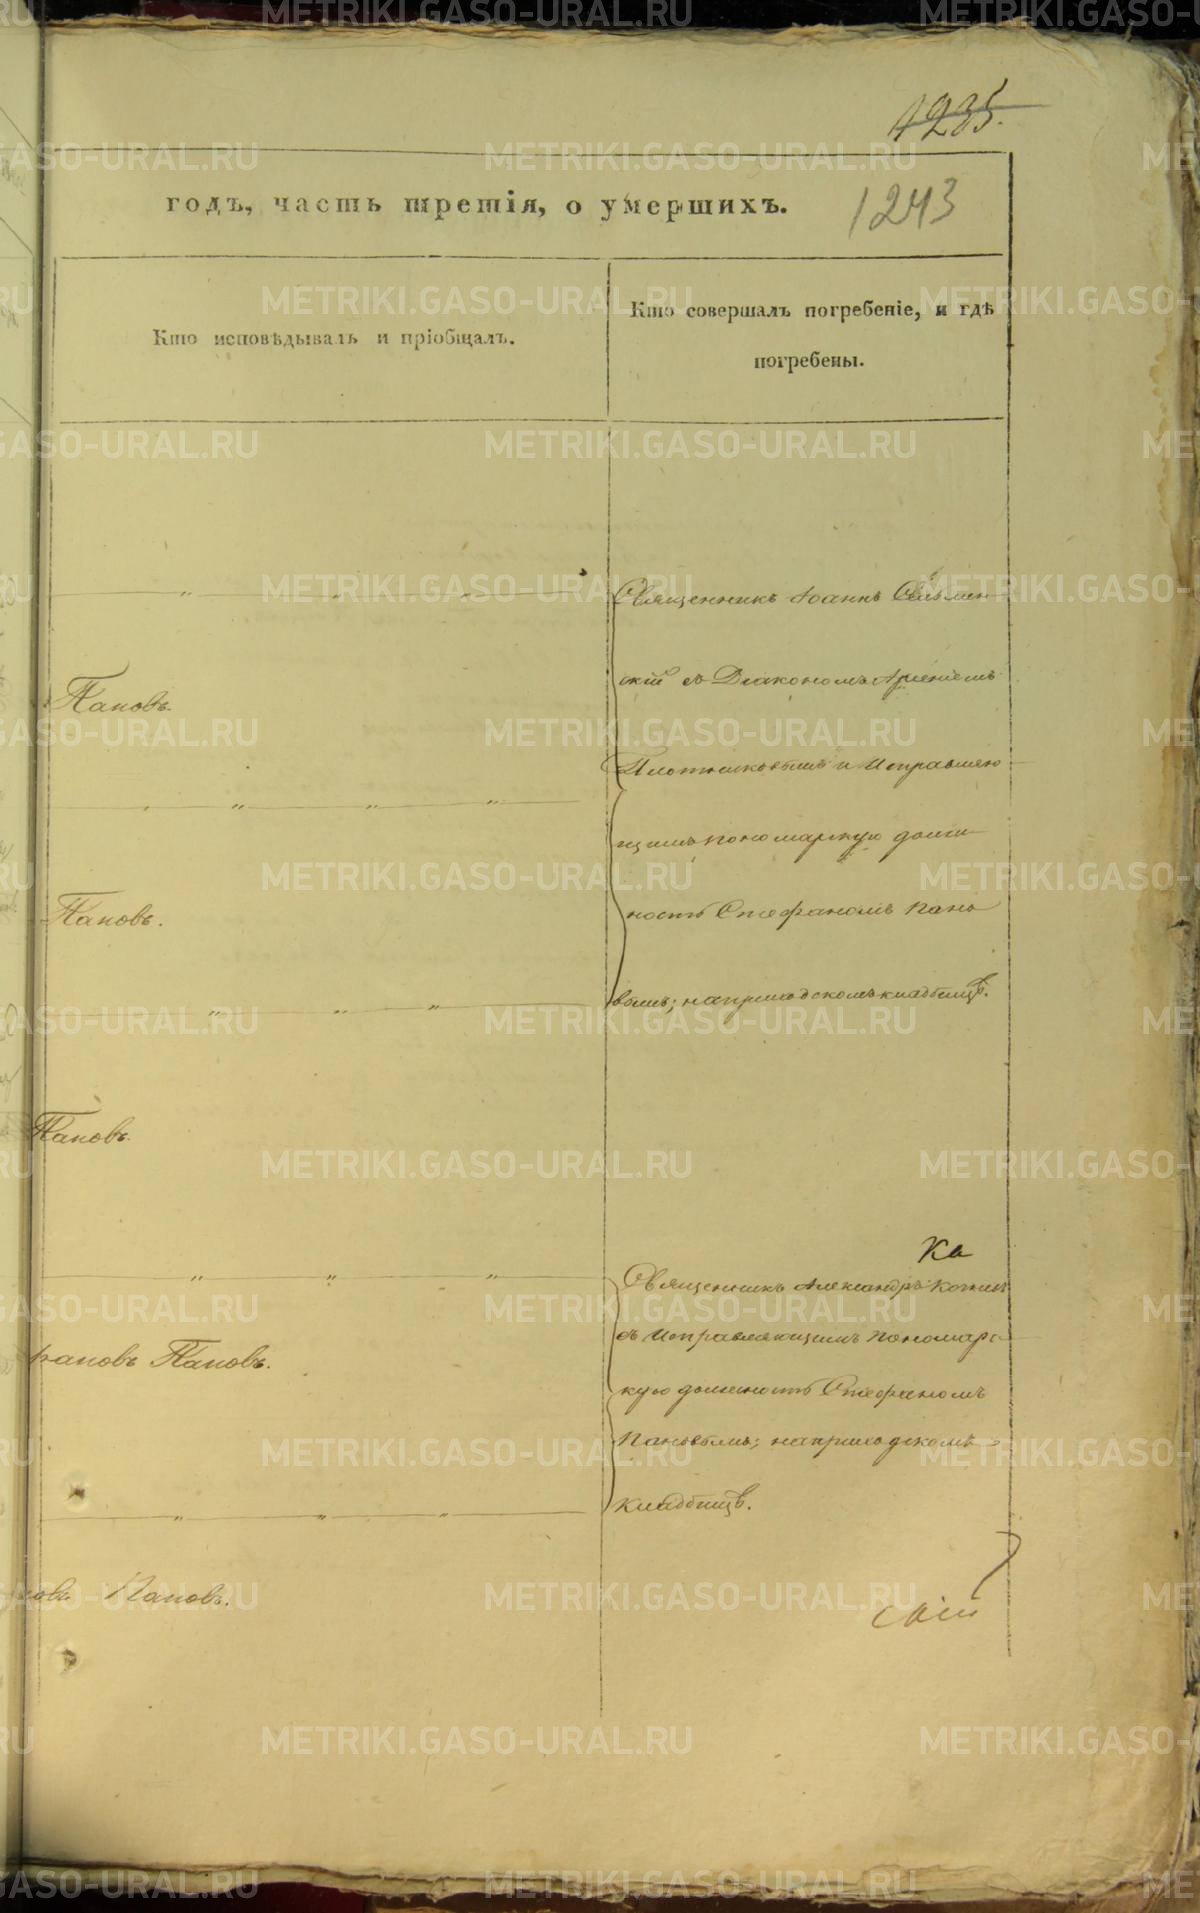 1235.
годъ, часть третія, о умершихъ.
1243
Кто исповѣдывалъ и пріобщалъ.
Кто совершалъ погребеніе, и гдѣ
погребены.
Священникъ Іоаннъ
скій съ Діакономъ Арсеніемъ
Пановъ.
Плотниковымъ и Исправляю
щимъ пономарскую долж
Пановъ.
ность Стефаномъ Пано
вымъ; на приходскомъ кладбищѣ.
Пановъ.
Ка
Священникъ Александръ
съ Исправляющимъ Пономарс
рановъ Пановъ.
кую должность Стефаномъ
Пановымъ; на приходскомъ
кладбищѣ.
овъ Пановъ.
METRIKI.GASO-URAL.RU